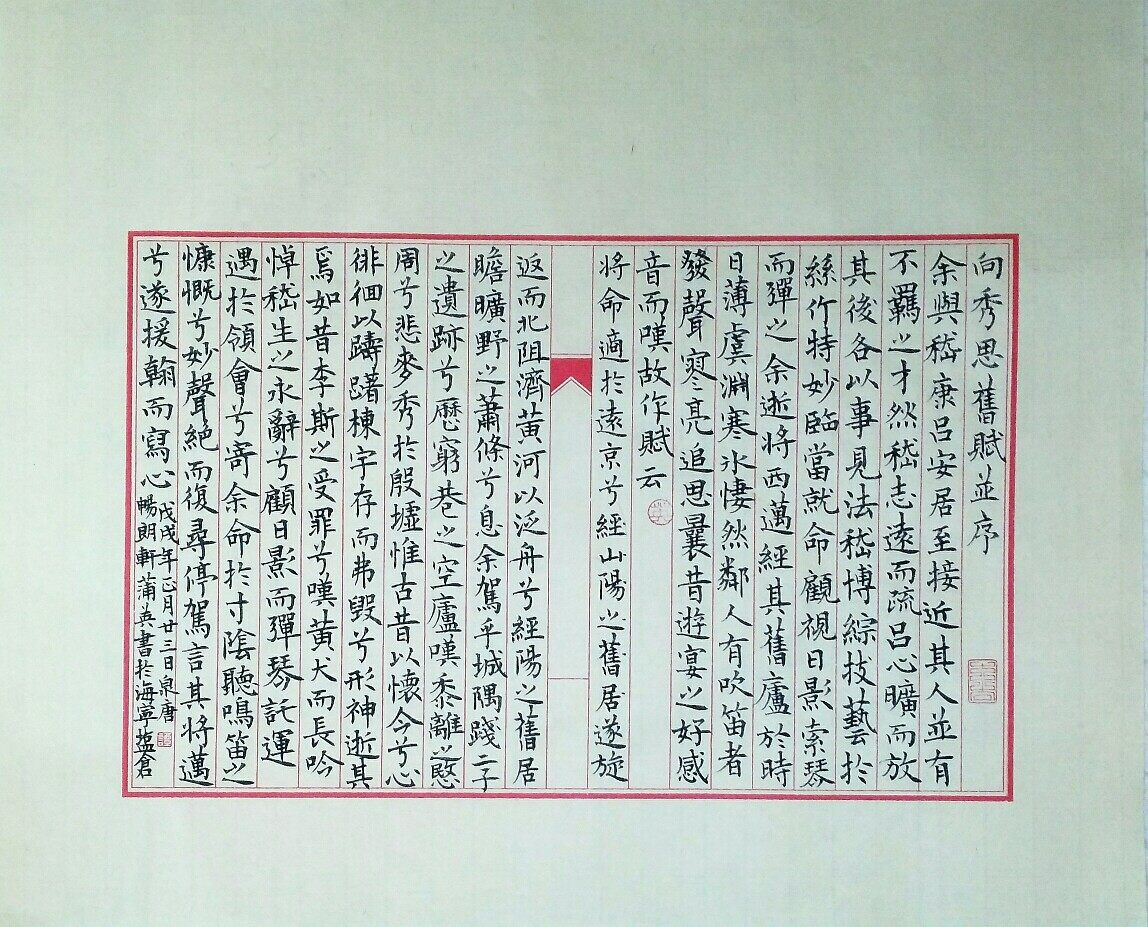 向秀思舊賦並序
余與嵇康呂安居至接近其人並有
不羈之才然嵇志遠而疏呂心曠而放
其後各以事見法嵇博綜技藝於
絲竹特妙臨當就命顧視日影索琴
而彈之余逝將西邁經其舊廬於時
日薄虞淵寒冰悽然鄰人有吹笛者
發聲寥亮追思曩昔遊宴之好感
音而嘆故作賦云
將命適於遠京兮經山陽之舊居遂旋
返而北阻濟黃河以泛舟兮經陽之舊居
瞻曠野之蕭條兮息余駕乎城隅踐二子
之遺跡兮歷窮巷之空廬嘆黍離之愍
周兮悲麥秀於殷墟惟古昔以懷今兮心
徘徊以躊躇棟宇存而弗毀兮形神逝其
焉如昔李斯之受罪兮嘆黃犬而長吟
悼嵇生之永辭兮顧日影而彈琴託運
遇於領會兮寄余命於寸陰聽鳴笛之
慷慨兮妙聲絕而復尋停駕言其將邁
兮遂援翰而寫心
戊戌年正月廿三日泉唐
暢朗軒蒲英書於海寧鹽倉